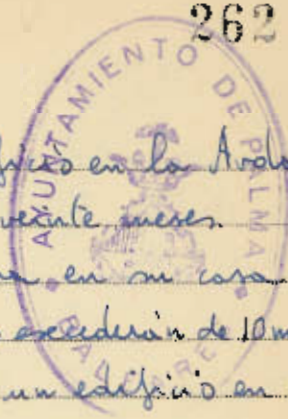 262
AYUNTAMIENTO DE PALMA
BALEARES
edificio en la Avda
veinte meses.
en su casa
excederán de 10 m
un edificio en